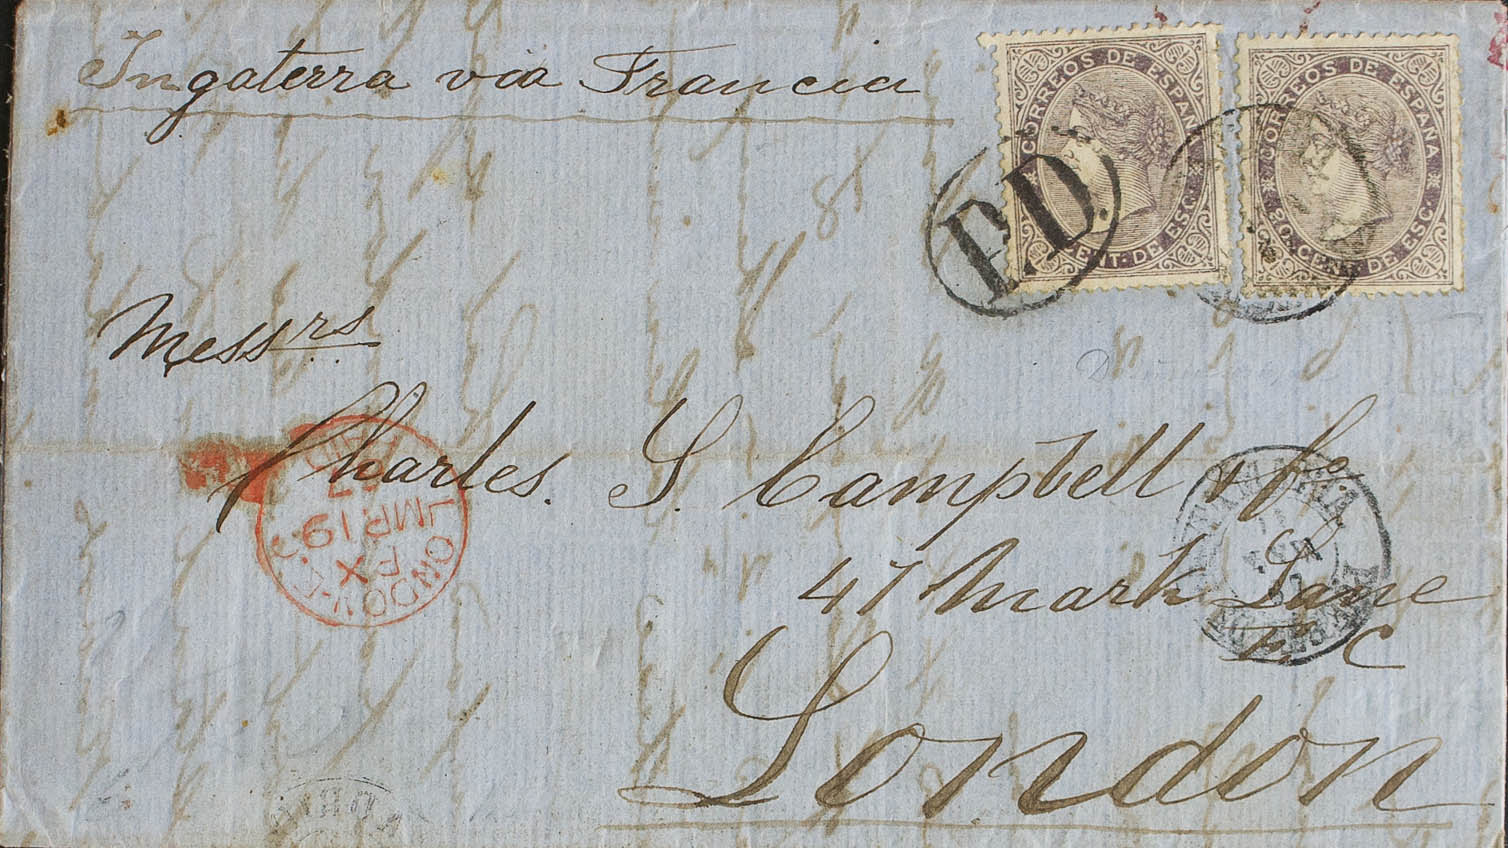 Ingaterra via Francia
CORREOS DE ESPAÑ
CENT. DE ESC.
CORREOS DE ESPAÑA
20. CENT. DE ESC.
P.D.
Messrs
Charles. S. Campbell & Co.
47 Mark Lane
E. C
London
LONDON-E.C
FX
MR 19
67
PAID